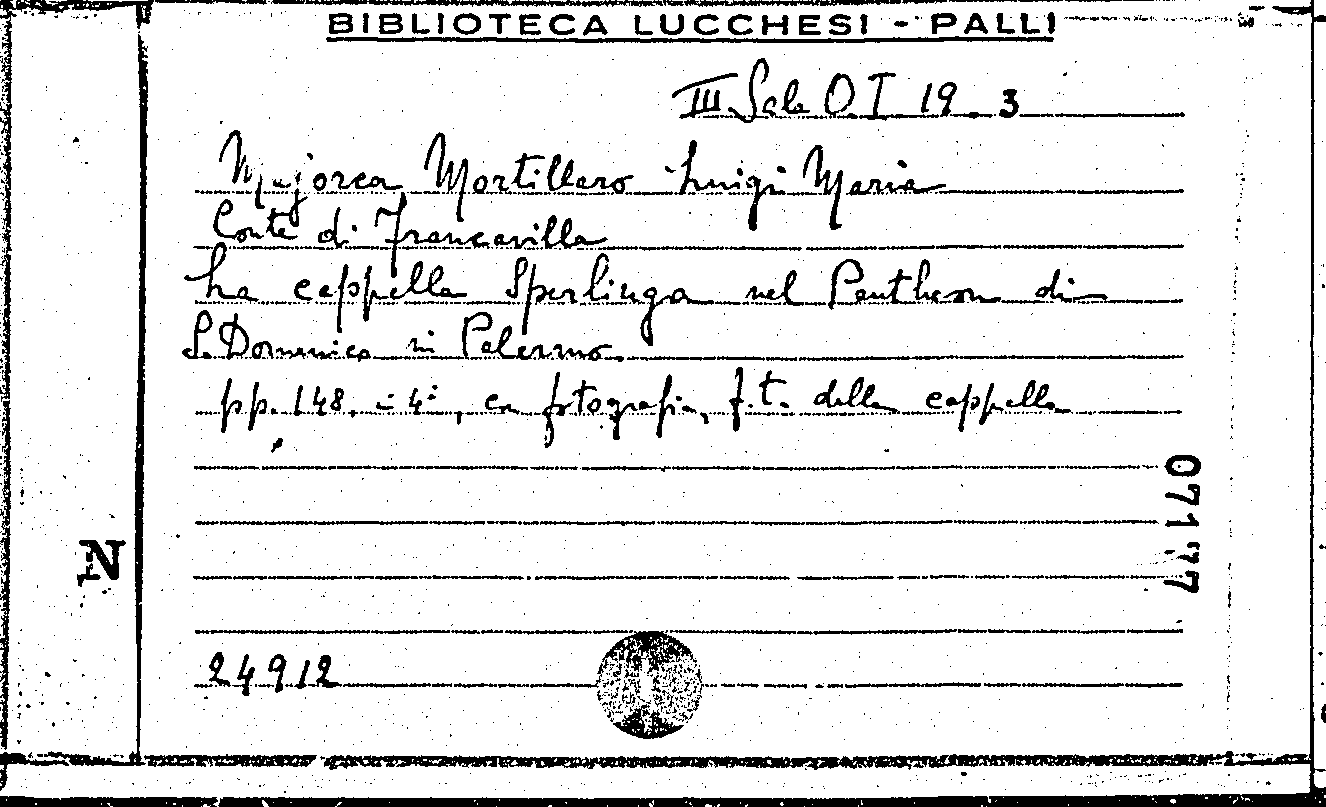 BIBLIOTECA LUCCHESI - PALLI
III Sala O. I 19. 3
Majorca Mortillaro Luigi Maria
Conte di Francavilla
La cappella Sperlinga nel Pantheon di
S. Domenico in Palermo.
pp. 148. in 4°, con fotografia, f.t. della cappella
07177
N
24912